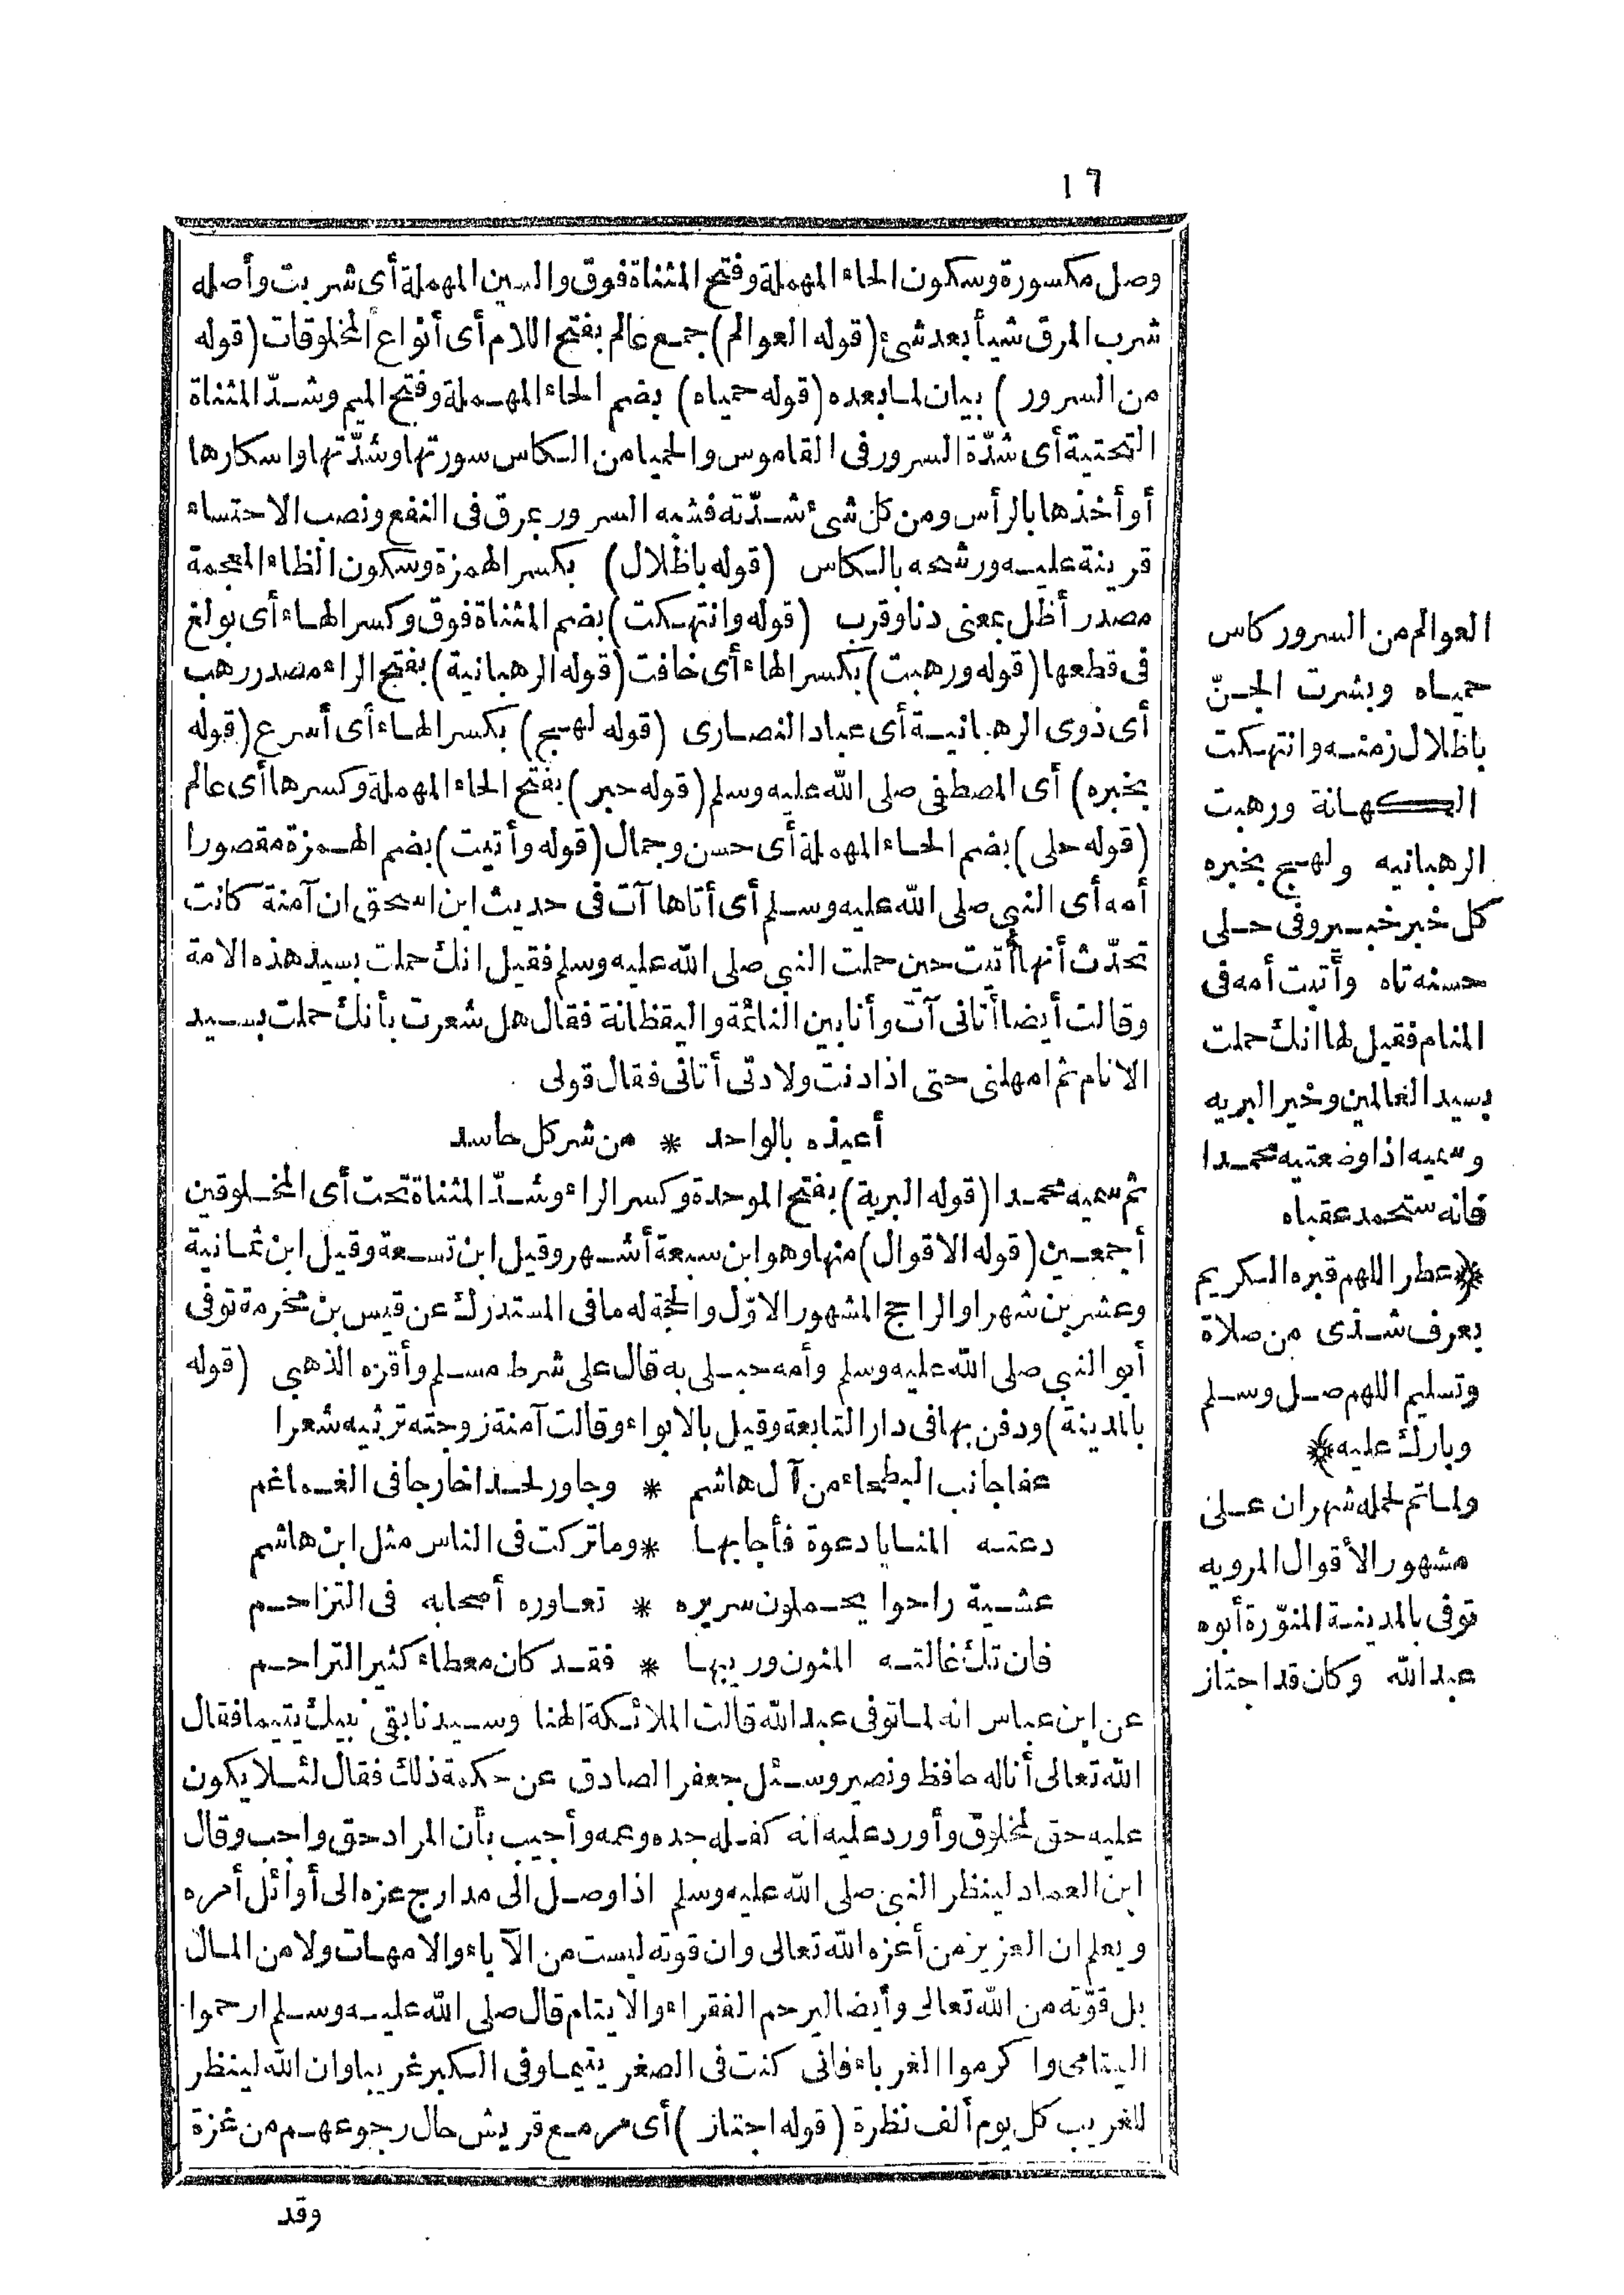 ١٦
وصل مكسورة وسكون الحاء المهملة وفتح المثناة فوق والسين المهملة أى شربت وأصله
شرب المرق شيأ بعد شئ (قوله العوالم) جمع عالم بفتح اللام أى أنواع المخلوقات (قوله
من السرور) بيان لما بعده (قوله حمياه) بضم الحاء المهملة وفتح الميم وشدّ المثناة
التحتية أى شدّة السرور فى القاموس والحميا من الكاس سورتها وشدّتها واسكارها
أو أخذها بالرأس ومن كل شئ شدّته فشبه السرور بمرق فى النفع ونصب الاحتساء
قرينة عليه ورشحه بالكاس (قوله باظلال) بكسر الهمزة وسكون الظاء المعجمة
مصدر أظل بمعنى دنا وقرب (قوله وانتهكت) بضم المثناة فوق وكسر الهاء أى بولغ
فى قطعها (قوله ورهبت) بكسر الهاء أى خافت (قوله الرهبانية) بفتح الراء مصدر رهب
أى ذوى الرهبانية أى عباد النصارى (قوله لهج) بكسر الهاء أى أسرع (قوله
بخبره) أى المصطفى صلى الله عليه وسلم (قوله حبر) بفتح الحاء المهملة وكسرها أى عالم
(قوله حلى) بضم الحاء المهملة أى حسن وجمال (قوله وأتيت) بضم الهمزة مقصورا
أمه أى النبى صلى الله عليه وسلم أى أتاها آت فى حديث ابن اسحق ان آمنة كانت
تحدّث أنها أتيت حين حملت النبى صلى الله عليه وسلم فقيل انك حملت بسيد هذه الامة
وقالت أيضا أتانى آت وأنا بين النائمة واليقظانة فقال هل شعرت بأنك حملت بسيد
الانام ثم امهلنى حتى اذا دنت ولادتى أتانى فقال قولى
أعيذه بالواحد * من شر كل حاسد
ثم سميه محمدا (قوله البرية) بفتح الموحدة وكسر الراء وشدّ المثناة تحت أى المخلوقين
أجمعين (قوله الاقوال) منها وهو ابن سبعة أشهر وقيل ابن تسعة وقيل ابن ثمانية
وعشرين شهرا والراجح المشهور الاوّل والحجة له ما فى المستدرك عن قيس بن مخرمة توفى
أبو النبى صلى الله عليه وسلم وأمه حبلى به قال على شرط مسلم وأقره الذهبى (قوله
بالمدينة) ودفن بها فى دار التابعة وقيل بالابواء وقالت آمنة زوجته ترثيه شعرا
عفا جانب البطحاء من آل هاشم * وجاور لحدا خارجا فى الغماغم
دعته المنايا دعوة فأجابها * وما تركت فى الناس مثل ابن هاشم
عشية راحوا يحملون سريره * تعاوره أصحابه فى التزاحم
فان تك غالته المنون وريبها * فقد كان معطاء كثير التراحم
عن ابن عباس انه لما توفى عبد الله قالت الملائكة الهنا وسيدنا بقى نبيك يتيما فقال
الله تعالى أنا له حافظ ونصير وسئل جعفر الصادق عن حكمة ذلك فقال لئلا يكون
عليه حق لمخلوق وأورد عليه انه كفله جده وعمه وأجيب بأن المراد حق واجب وقال
ابن العماد لينظر النبى صلى الله عليه وسلم اذا وصل الى مدارج عزه الى أوائل أمره
ويعلم ان العزيز من أعزه الله تعالى وان قوته ليست من الآباء والامهات ولا من المال
بل قوّته من الله تعالى وأيضا ليرحم الفقراء والايتام قال صلى الله عليه وسلم ارحموا
اليتامى وا كرموا الغرباء فانى كنت فى الصغر يتيما وفى الكبر غريبا وان الله لينظر
للغريب كل يوم ألف نظرة (قوله اجتاز) أى مر مع قريش حال رجوعهم من غزة
وقد
العوالم من السرور كاس
حمياه وبشرت الجنّ
باظلال زمنه وانتهكت
الكهانة ورهبت
الرهبانيه ولهج بخبره
كل حبر خبير وفى حلى
حسنه تاه وأتيت أمه فى
المنام فقيل لها انك حملت
بسيد العالمين وخير البريه
وسميه اذا وضعتيه محمدا
فانه ستحمد عقباه
﴿عطر اللهم قبره الكريم
بعرف شذى من صلاة
وتسليم اللهم صل وسلم
وبارك عليه﴾
ولما تم لحمله شهران على
مشهور الأقوال المرويه
توفى بالمدينة المنوّرة أبوه
عبد الله وكان قد اجتاز